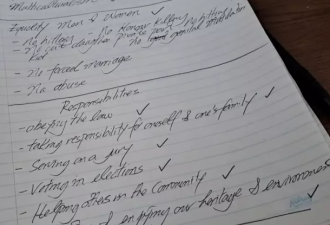 Multiculturalism
Equality Men & Women
- No hitting No Honour Killing
- No forced marriage
- No abuse
Responsibilities
- obeying the law ✓
- taking responsibility for oneself & one's family ✓
- Serving on a jury ✓
- Voting in elections ✓
- Helping others in the Community ✓
& enjoying our heritage & environment ✓